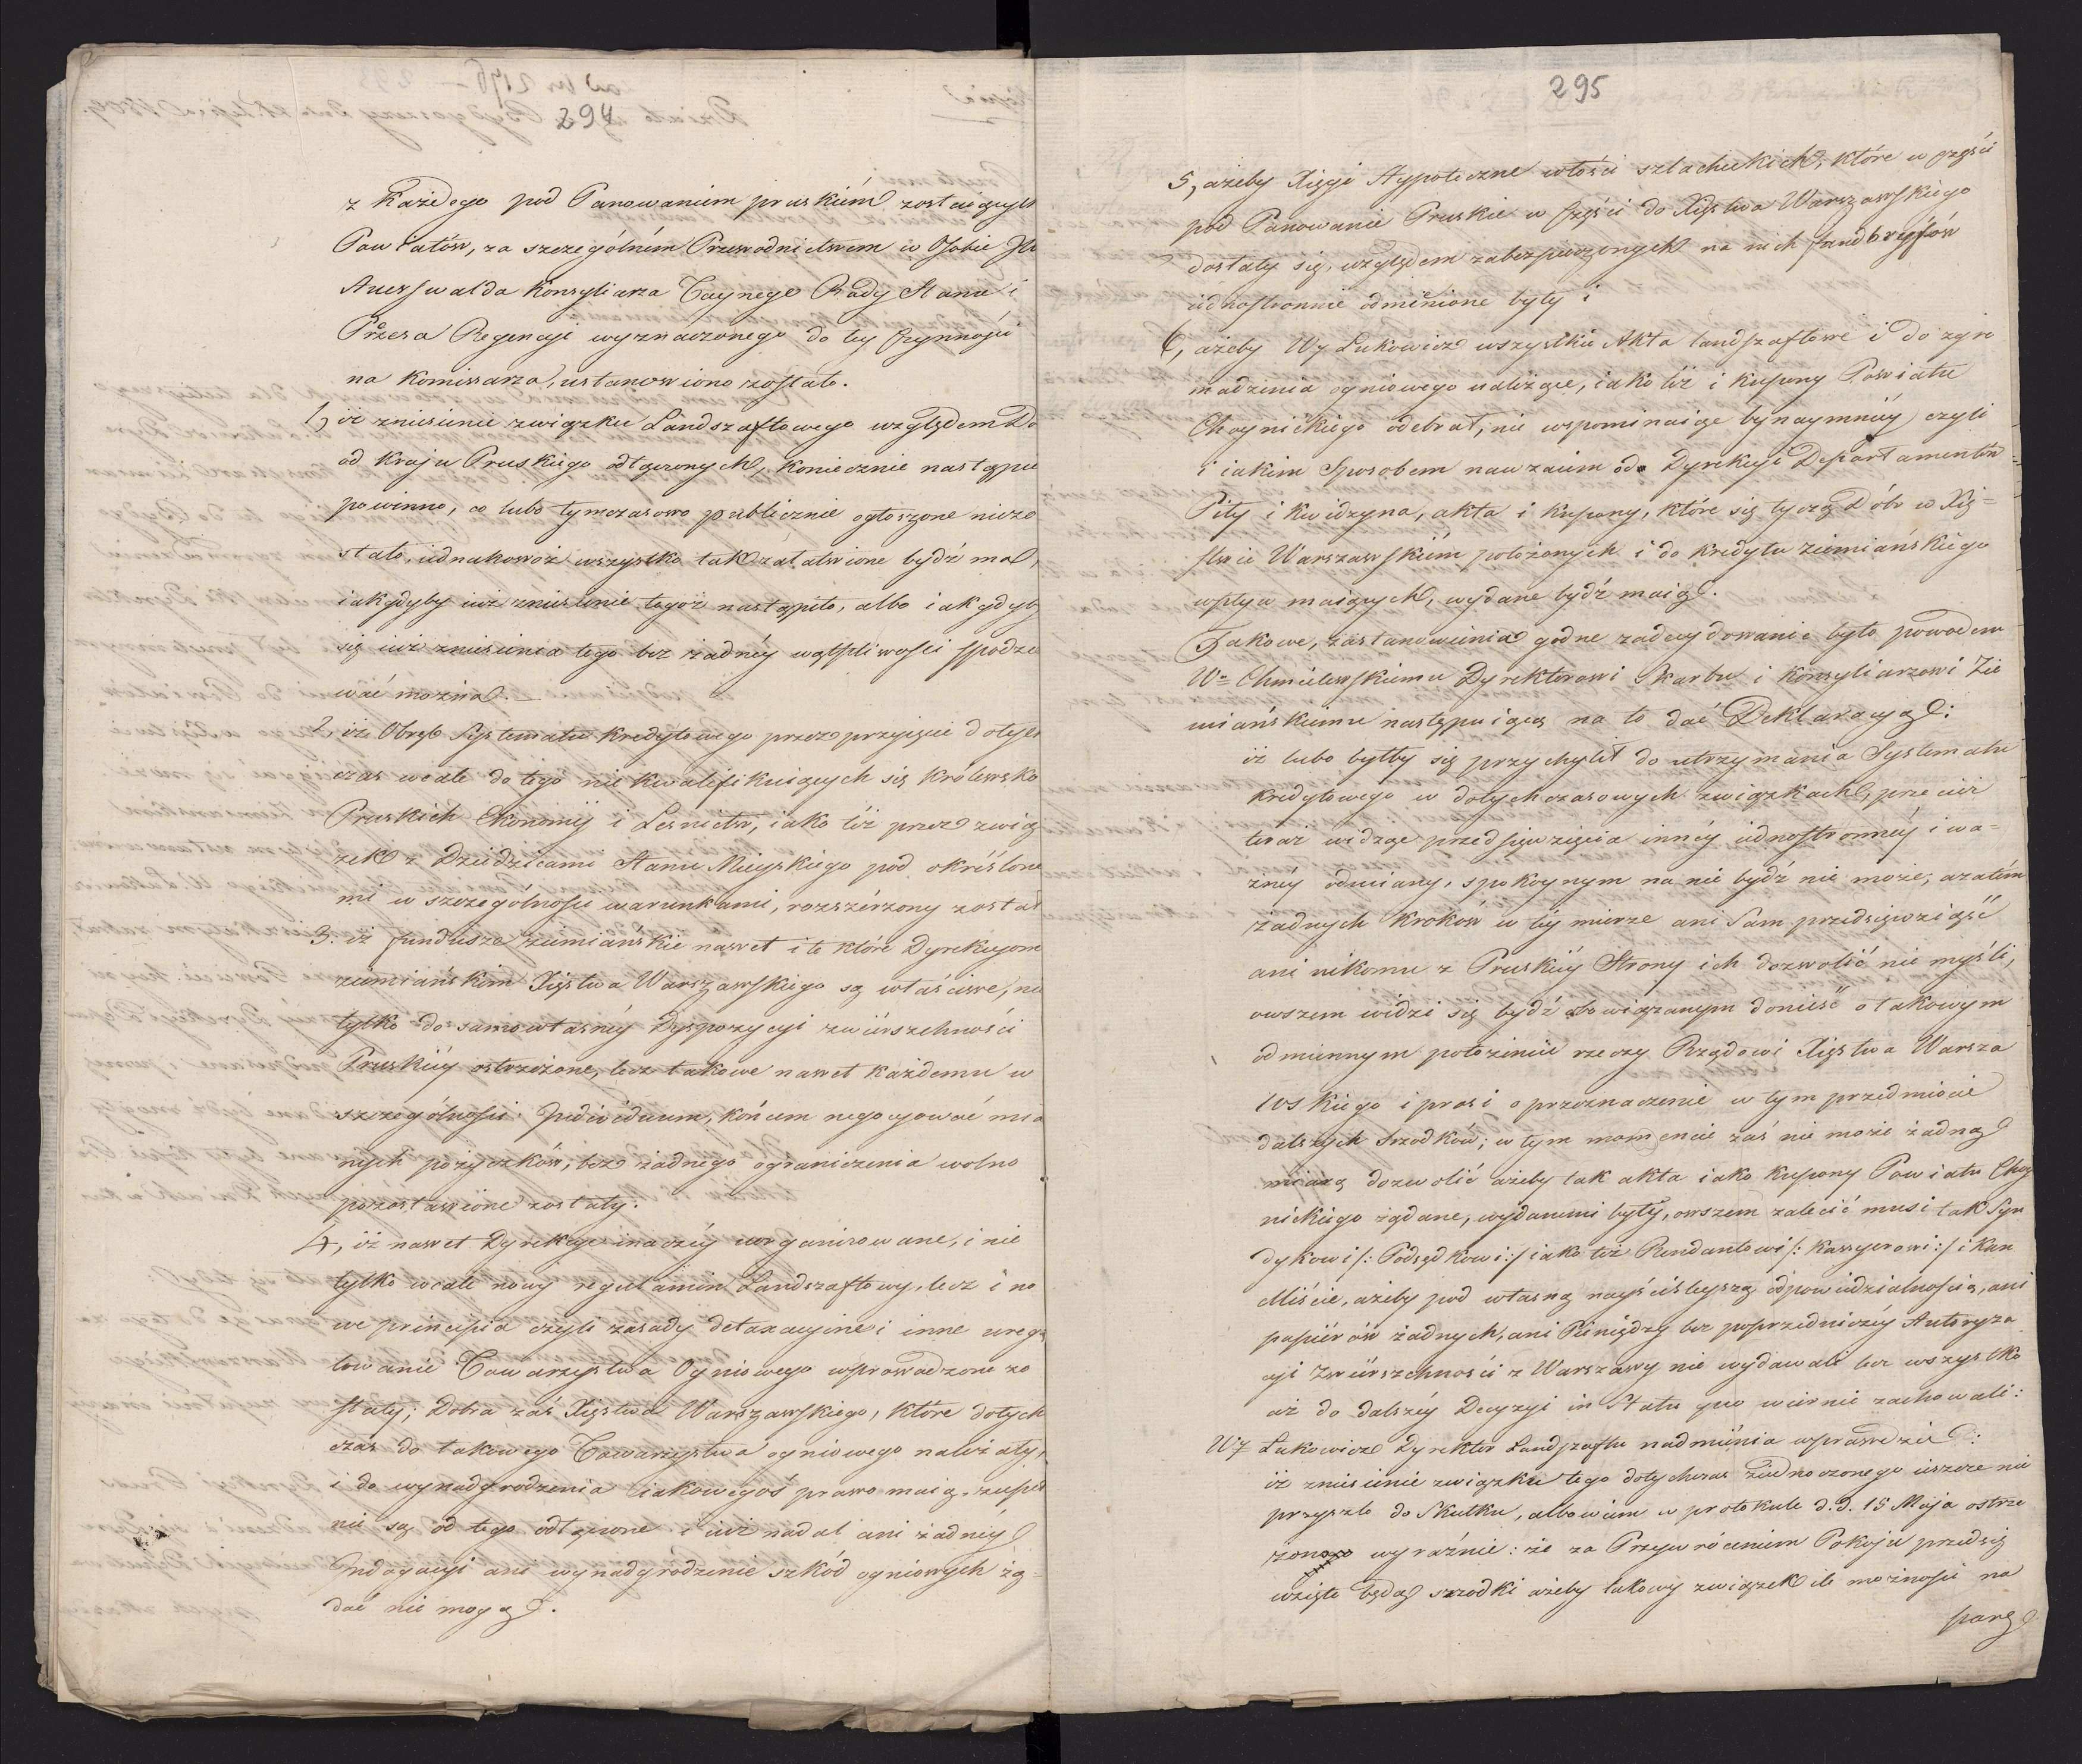 294
z Każdego pod Panowaniem pruskiém zostaiących
Powiatów, za szczególném Przewodnictwem w Osobie JW
Auerswalda Konsyliarza Taynego Rady Stanu i
Prezesa Regencyi wyznaczonego do tey Czynności
na Komissarza, ustanowiono zostało.
1, iż zniesienie związku Landszaftowego względem Dó
od Kraju Pruskiego odłączonych, koniecznie nastąpić
powinno, co lubo tymczasowo publicznie ogłoszone niezo
stało, iednakowoż wszystko tak załatwione bydź ma,
iakgdyby iuż zniesienie tegoż nastąpiło, albo iakgdyby
się iuż zniesienia tego bez żadnéy wątpliwości spodze
wać można.
2, iż Obręb Systematu Kredytowego przez przyięcie dotych
czas wcale do tego nie kwalifikuiących się Królewsko
Pruskich Ekonomij i Lesnictw, iako téż przez zwią
zek z Dziedzicami Stanu Mieyskiego pod określone
mi w szczególności warunkami, rozszérzony został
3. iż fundusze ziemiańskie nawet i te które Dyrekcyom
ziemiańskim Xięstwa Warszawskiego są właściwe, nie
tylko do samowłasnéy Dyspozycyi zwiérzchności
Pruskiéy ostrzeżone, lecz takowe nawet każdemu w
szczególności Individuum, końcem negocyować mia
nych pożyczków, bez żadnego ograniczenia wolno
pozostawione zostały.
4, iż nawet Dyrekcye inaczéy uorganizowane, i nie
tylko wcale nowy regulamin Landszaftowy, lecz i no
we principia czyli zasady detaxacyine i inne uregu
lowanie Towarzystwa Ogniowego wprowadzone zo
stały; Dobra zaś Xięstwa Warszawskiego, które dotych
czas do takowego Towarzystwa ogniowego należały,
i do wynadgrodzenia iakowegoś prawo maią, zupeł
nie są od tego odłączone i iuż nadal ani żadnéy
Indagacyi ani wynadgrodzenie szkód ogniowych żą=
dać nie mogą.
295
5, ażeby Xięgi Hypoteczne włości szlacheckich, które w części
pod Panowanie Pruskie w części do Xięstwa Warszawskiego
dostały się, względem zabezpieczonych na nich fandbryfów
iednostronnie odmienione były i
6, ażeby Wy Łukowicz wszystkie Akta landszaftowe i do zgro
madzenia ogniowego należące, iako téż i kupony Powiatu
Choynickiego odebrał, nie wspominaiąc bynaymniéy czyli
i iakim Sposobem nawzaiem od Dyrekcyi Departamentów
Piły i Kwidzyna, akta i kupony, które się tyczą Dóbr w Xię=
stwie Warszawskiém położonych i do kredytu ziemiańskiego
wpływ maiących, wydane bydź maią.
Takowe, zastanowienia godne zadecydowanie było powodem
Wu Chmielewskiemu Dyrektorowi Skarbu i Konsyliarzowi Zie
miańskiemu następuiącą na to dać Deklaracyą:
iż lubo byłby się przychylił do utrzymania Systematu
kredytowego w dotychczasowych związkach, przecież
teraz widząc przedsięwzięcia innéy iednostronnéy i wa=
żnéy odmiany, spokoynym na nie bydź nie może; azatém
żadnych kroków w téy mierze ani Sam przedsięwziąść
ani nikomu z Pruskiéy Strony ich dozwolić nie myśli,
owszem widzi się bydź obowiązanym donieść o takowym
odmiennym położeniu rzeczy Rządowi Xięstwa Warsza
wskiego i prosi o przeznaczenie w tym przedmiocie
dalszych srzodków; w tym momencie zaś nie może żadną
miarą dozwolić ażeby tak akta iako kupony Powiatu Choy
nickiego żądane, wydanemi były, owszem zalecić musi tak Syn
dykowi /: Podsędkowi :/ iako téż Rendantowi /: Kassyerowi :/ i Kan
celliście, ażeby pod własną nayściśleyszą odpowiedzialnością, ani
papiérów żadnych, ani Pieniędzy bez poprzedniczéy Autoryza
cyi Zwiérzchności z Warszawy nie wydawali lecz wszystko
aż do dalszéy Decyzyi in Statu quo wiernie zachowali:
Wy Łukowicz Dyrektor Landszaftu nadmienia wprawdzie:
iż zniesienie związku tego dotychczas ziednoczonego ieszcze nie
przyszło do Skutku, albowiem w protokule d.d. 15 Maja ostrze
żono wyraźnie: że za Przywróceniem Pokoju przedsię
wzięte będą srzodki ażeby takowy związek ile możności na
parę